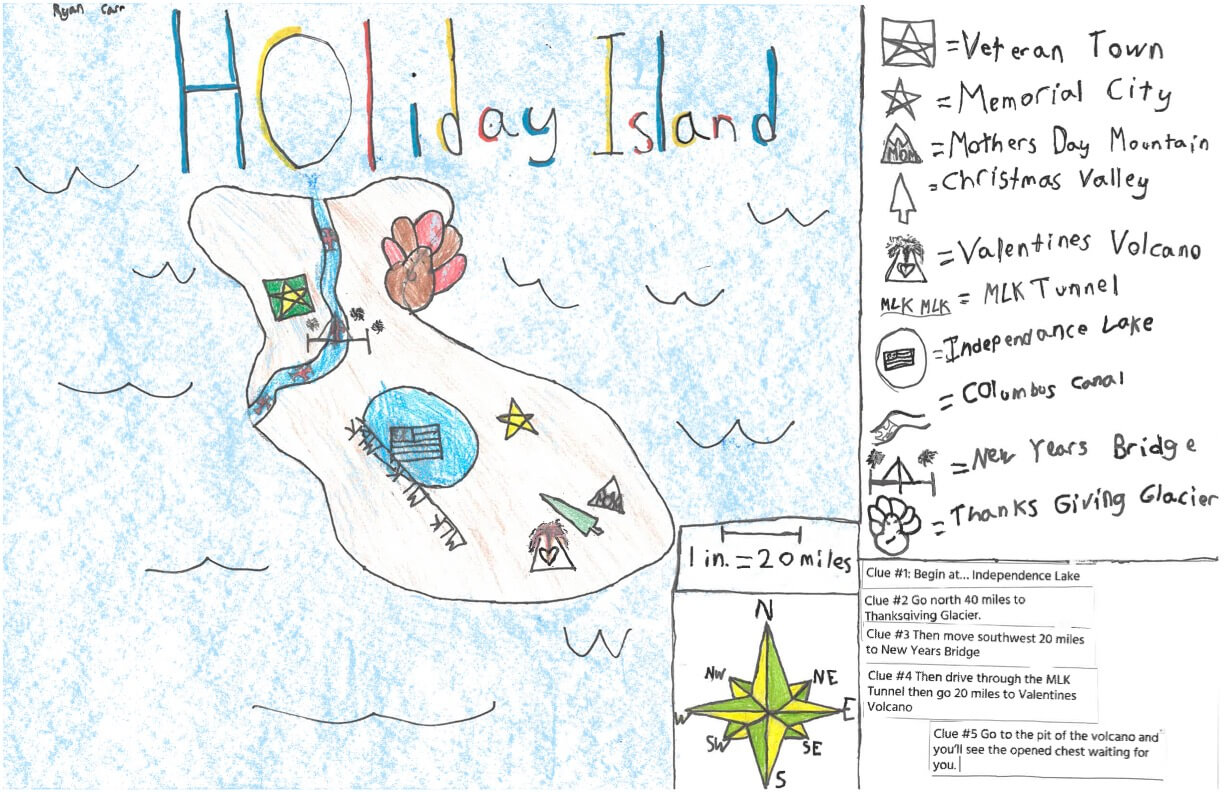 Ryan Carr
Holiday Island
=Veteran Town
=Memorial City
MOM =Mothers Day Mountain
=Christmas Valley
=Valentines Volcano
MLK MLK = MLK Tunnel
=Independance Lake
= Columbus Canal
=New Years Bridge
=Thanks Giving Glacier
MLK
MLK
MLK
MOM
1 in. = 20 miles
N
NW NE
W E
SW SE
S
Clue #1: Begin at... Independence Lake
Clue #2 Go north 40 miles to
Thanksgiving Glacier.
Clue #3 Then move southwest 20 miles
to New Years Bridge
Clue #4 Then drive through the MLK
Tunnel then go 20 miles to Valentines
Volcano
Clue #5 Go to the pit of the volcano and
you'll see the opened chest waiting for
you.